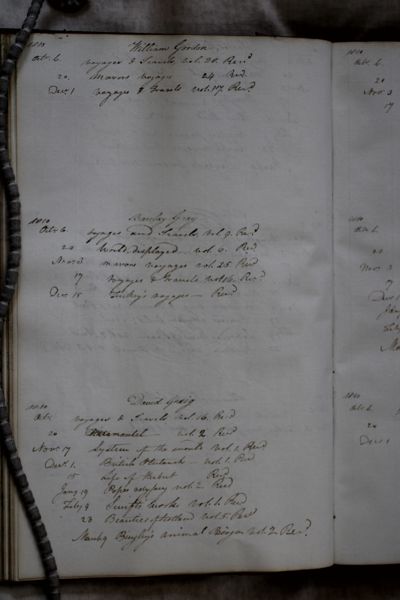 1810 William Gordon
Octr. 6. voyages & Travels vol. 20. Retd.
20. mavors voyages 24 Retd.
Decr. 1 voyages & Travels vol. 17. Retd.
1810 Gray
Octr. 6. voyages and Travels vol 9. Retd.
20 World displayed vol 6. Retd
Novr. 3 mavors voyages vol. 25 Retd
17 voyages & Travels vol. 16. Retd.
Decr. 15 voyages — Retd.
1810 David Greig
Octr. voyages & Travels vol 16. Retd
20 vol. 2 Retd
Novr. 17 System of the vol. 2 Retd
Decr. 1. British vol. 1. Retd
15 Life of Retd
Jany. 19 Popes vol 2. Retd
Feby. 9 Swifts works vol. 1. Retd
23 Beauties of vol. 5. Retd
March 9 animal vol. 2. Retd.
1810
Octr. 6.
20
Novr. 3
17
1810
Octr. 6.
20
Novr. 3
17
Decr. 1
Jany
Feby
1810
Octr. 6
20
Decr. 1